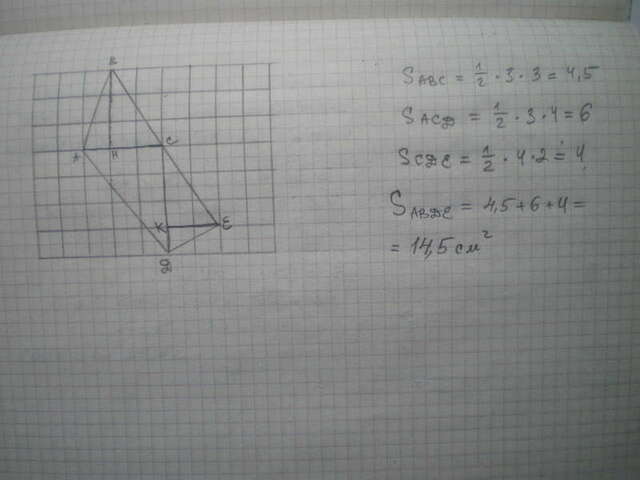 B
A H C
K E
D
S ABC = 1/2 · 3 · 3 = 4,5
S ACD = 1/2 · 3 · 4 = 6
S CDE = 1/2 · 4 · 2 = 4
S ABDE = 4,5 + 6 + 4 =
= 14,5 см²